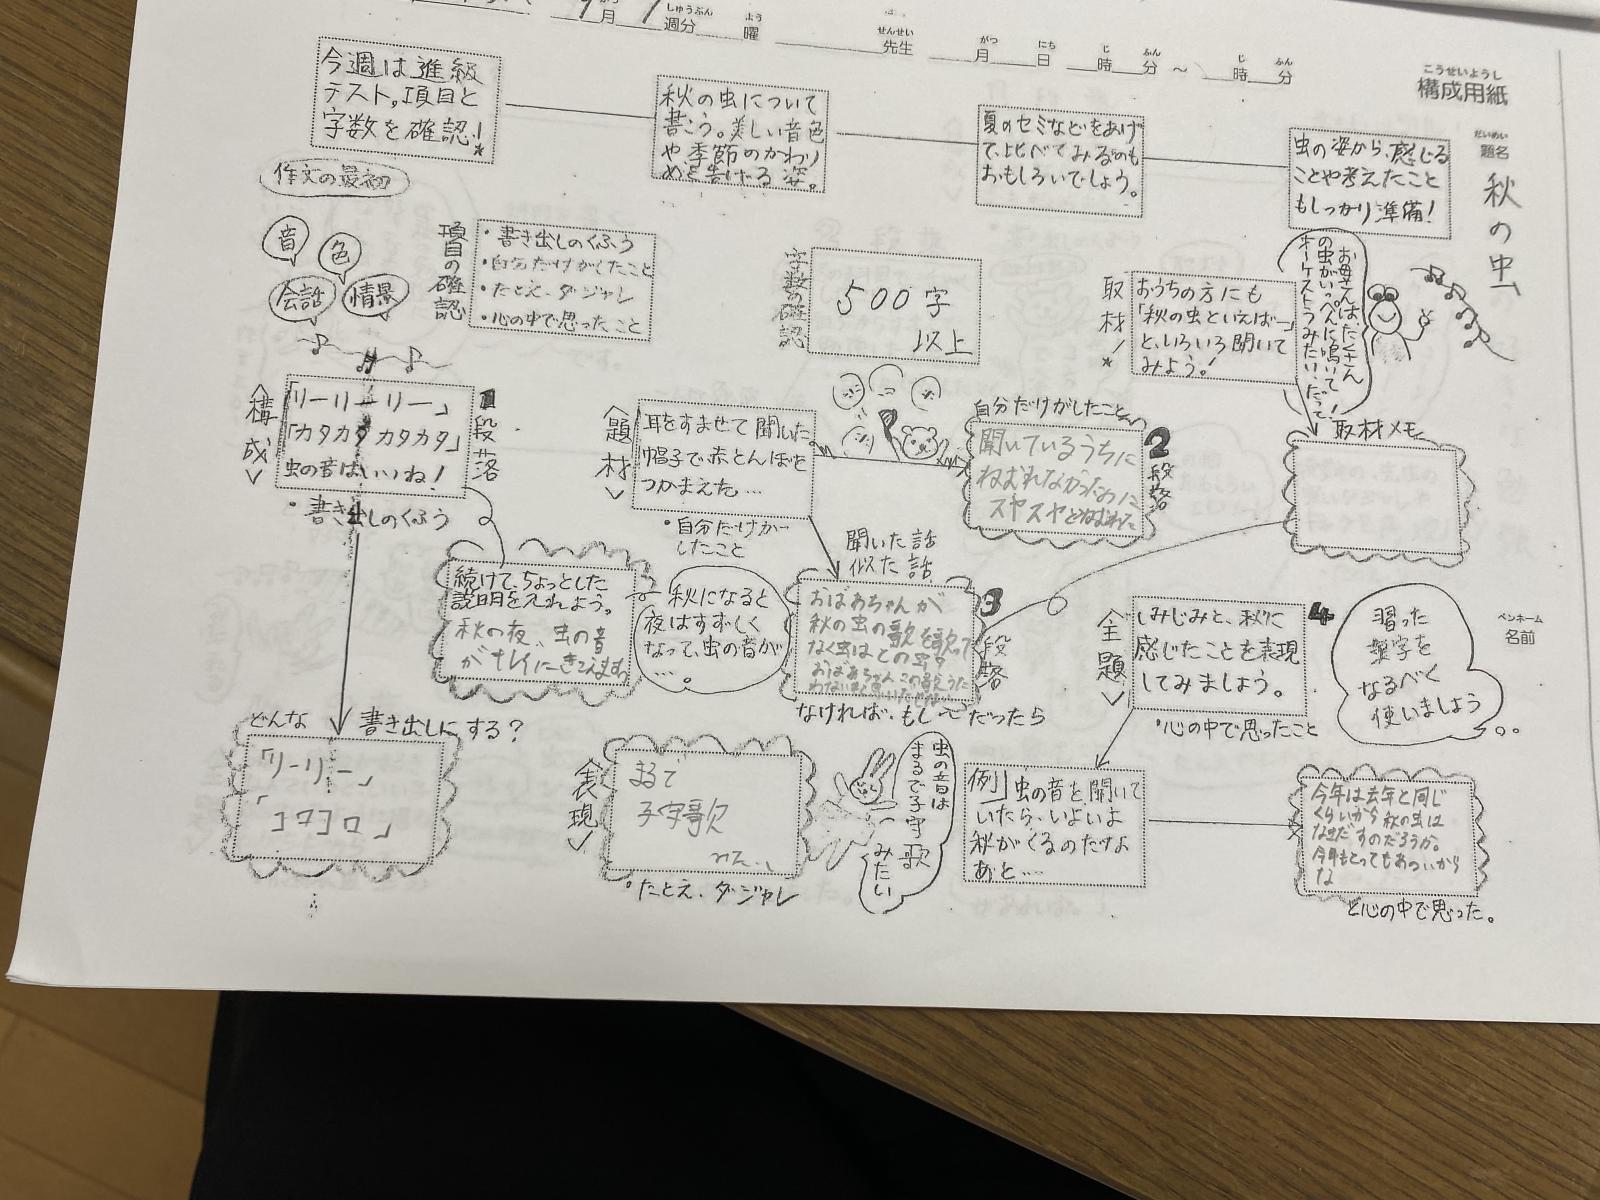 月 週分 曜 先生 月 日 時 分 ～ 時 分
しゅうぶん よう せんせい がつ にち じ ふん じ ふん
こうせいようし
構成用紙
だいめい
題名
秋の虫
ペンネーム
名前
今週は進級
テスト。項目と
字数を確認！
秋の虫について
書こう。美しい音色
や季節のかわり
めを告げる姿。
夏のセミなどをあげ
て、比べてみるのも
おもしろいでしょう。
虫の姿から、感じる
ことや考えたこと
もしっかり準備！
作文の最初
音
色
会話
情景
項目の確認
・書き出しのくふう
・自分だけがしたこと
・たとえ、ダジャレ
・心の中で思ったこと
字数の確認
500字
以上
取材！
おうちの方にも
「秋の虫といえば…」
と、いろいろ聞いて
みよう！
お母さんはたくさん
の虫がいっぺんに鳴いて！
オーケストラみたい、だって、
構成
「リーリーリー」
「カタカタカタカタ」
虫の音はいいね！
1段落
・書き出しのくふう
題材
耳をすませて聞いた
帽子で赤とんぼを
つかまえた…
・自分だけが
したこと
自分だけがしたこと
聞いているうちに
ねむれなかったのに
スヤスヤとねむれた
2段落
取材メモ
続けて、ちょっとした
説明を入れよう。
秋の夜、虫の音
がキレイにきこえます
秋になると
夜はすずしく
なって、虫の音が
…。
聞いた話
似た話
おばあちゃんが
秋の虫の歌を歌って
なく虫はどの虫？
3段落
なければ・もし〜だったら
主題
しみじみと、秋に
感じたことを表現
してみましょう。
4
・心の中で思ったこと
習った
漢字を
なるべく
使いましょう
どんな 書き出しにする？
「リーリー」
「コロコロ」
表現
まるで
子守歌
みたい
・たとえ、ダジャレ
虫の音は
まるで子守歌
みたい
例」虫の音を聞いて
いたら、いよいよ
秋がくるのだなよ
あと…
今年は去年と同じ
くらいから秋の虫は
なきだすのだろうか。
今年もとってもあついから
な
と心の中で思った。